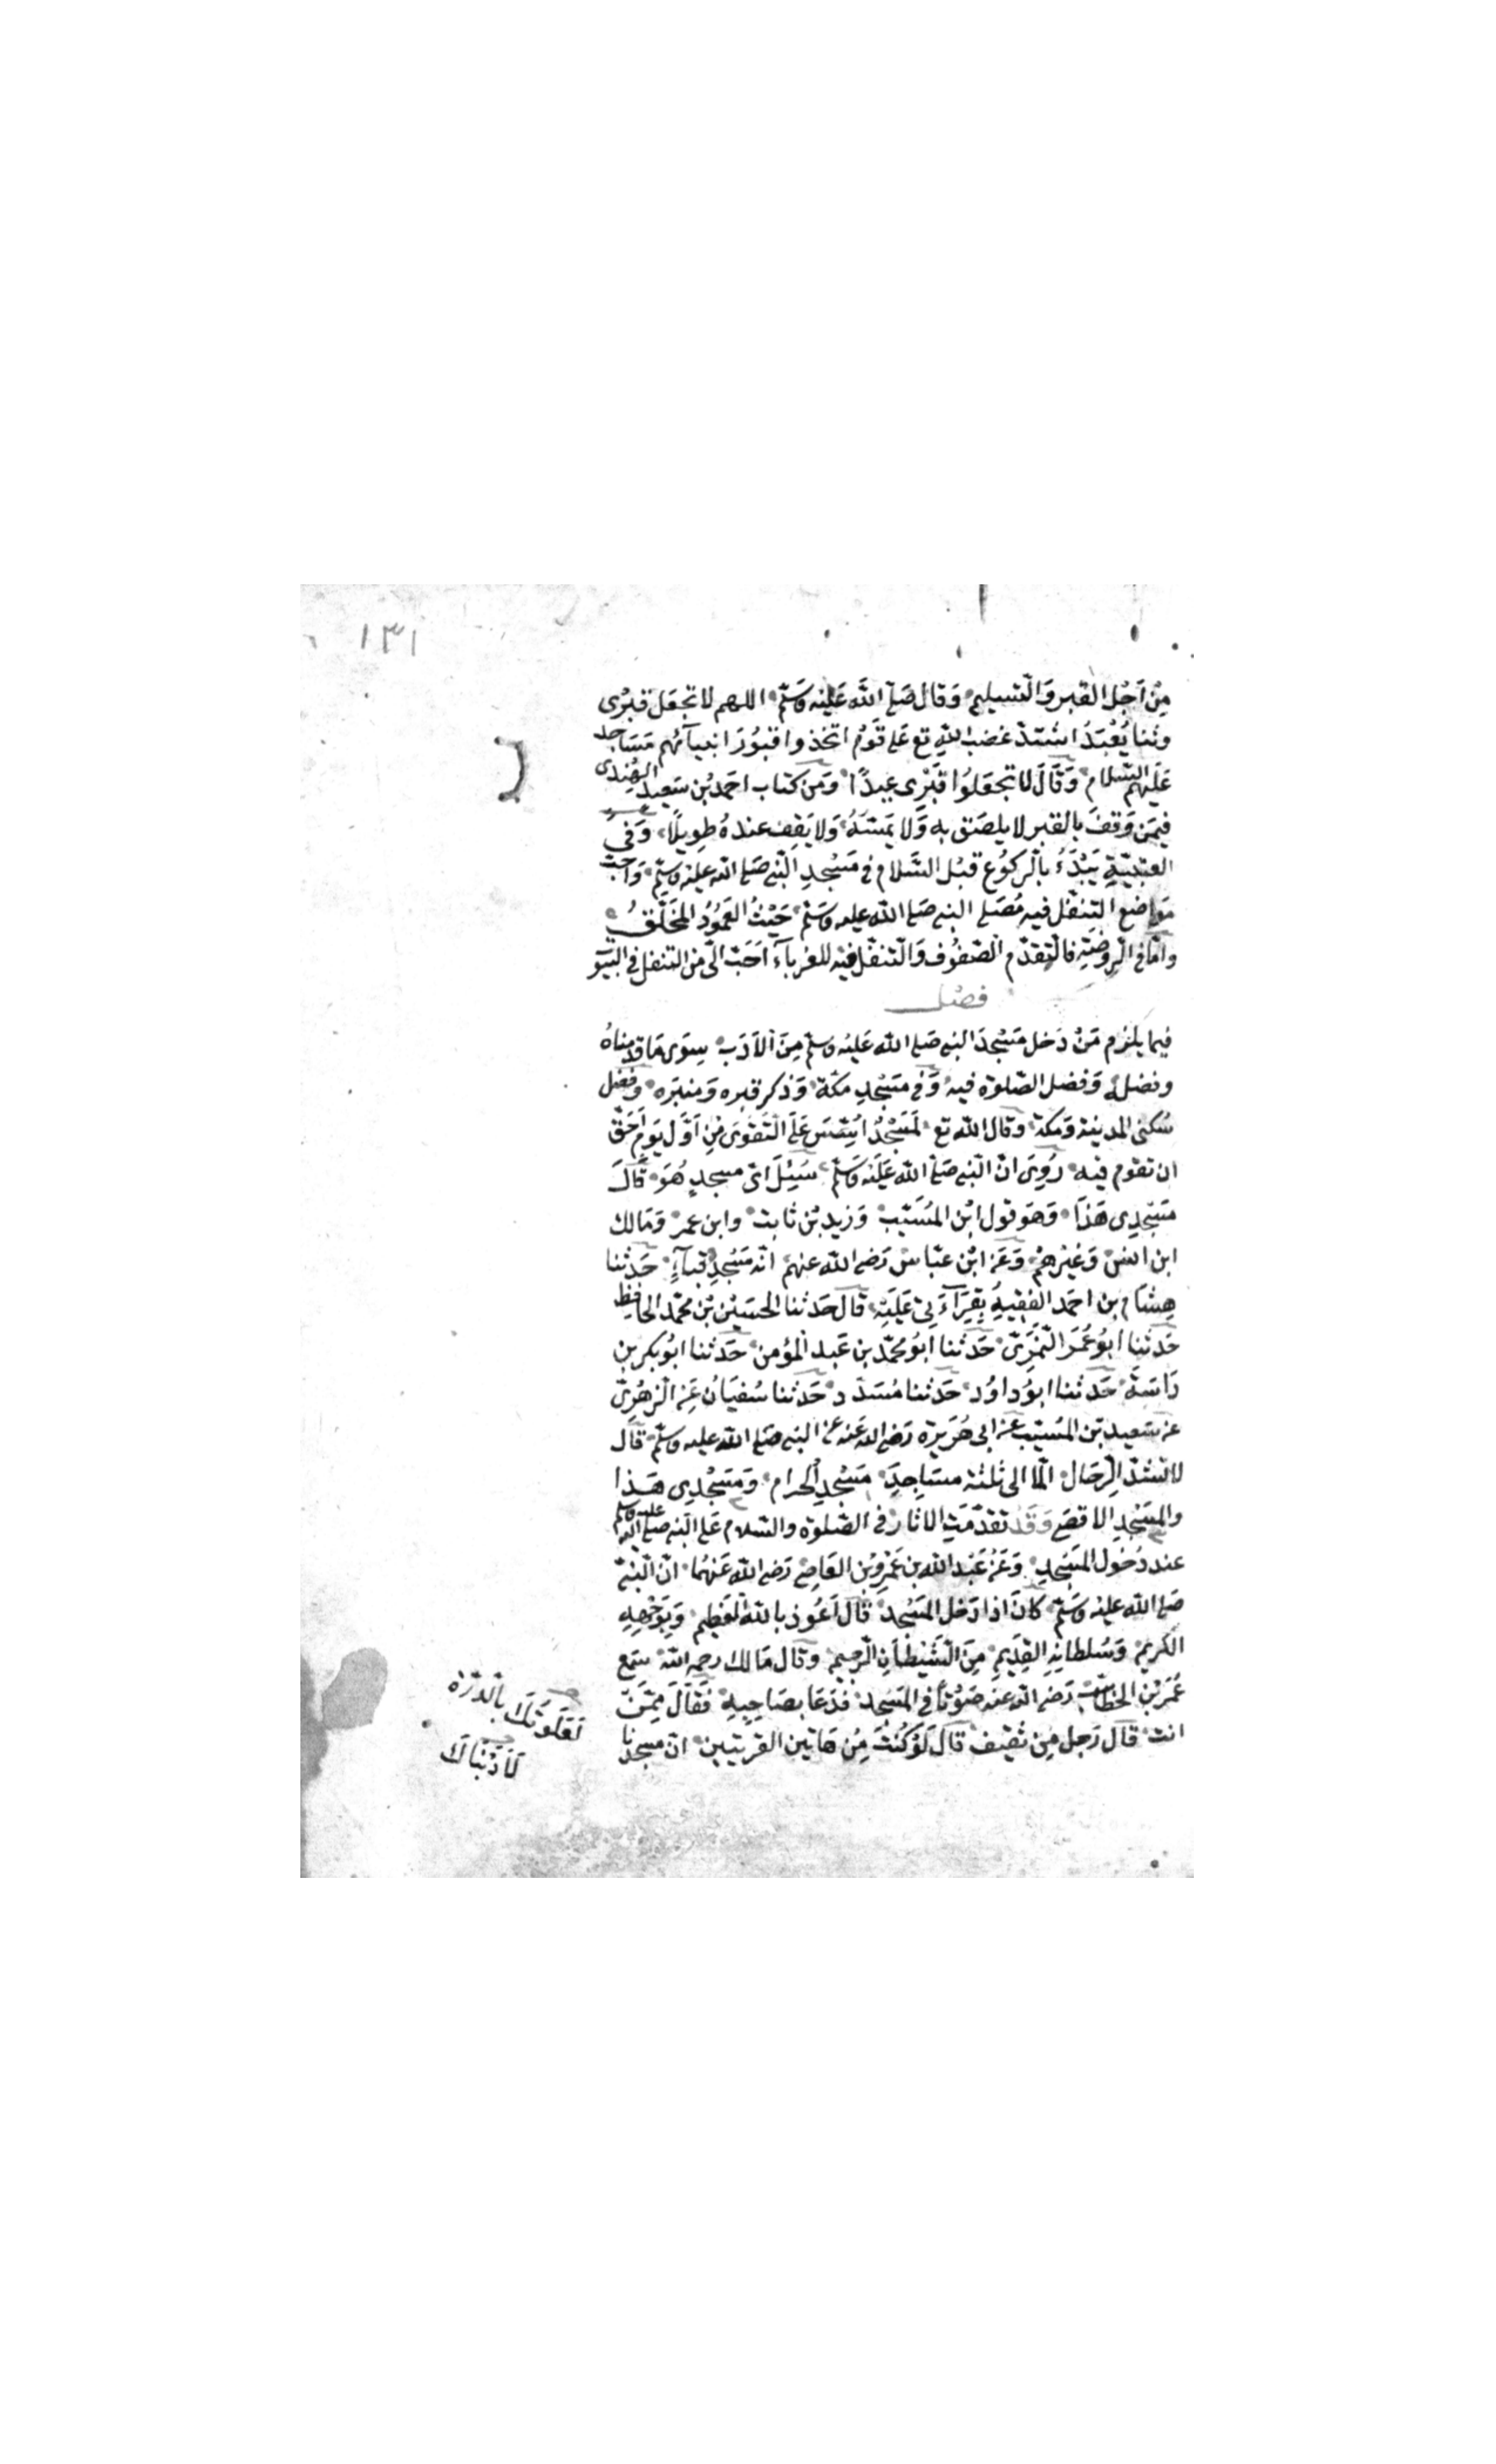 ١٣١
مِنْ اَجْلِ القبر وَالتسليم وَقال صَلّى اللّٰه عَليْه وَسَلّم اللهم لا تجعَل قَبْرى
وثنا يُعْبَدُ اشتدّ غضب اللّٰهِ تع عَلى قَوْم اتخذوا قبُورَ انبيآئهم مَسَاجد
عَلَيْهم السّلام وَقَالَ لا تجعَلوُا قَبْرى عِيدًا وَمن كتاب احمد بْن سَعيد الهِندى
فيمَن وَقفَ بالقبر لا يلصَق بهِ وَلا يَمَسّهُ وَلا يَقِف عندهُ طويلًا وَفى
العتبيّةِ يَبْدَءُ بالركوُع قبْل السَّلام فى مَسْجدِ النّبى صَلى اللّٰه عليْه وسَلّم وَاحبّ
مَواضع التنفّل فيه مُصَلى النبى صَلى اللّٰه عليه وسَلّم حَيْثُ العَمُودُ المخَلّقُ
وامّا فى الفريضَةِ فالتقدّم الى الصّفوُف وَالتنفّل فيْه للغربآءِ اَحَبّ الىّ من التنفل فى البيوت
فصْل
فيما يلزم مَنْ دَخل مَسْجدَ النبى صَلى اللّٰه عَليْه وسَلّم مِنَ الاَدَب سِوَى مَا قدمناهُ
وفضلهُ وَفضل الصّلوة فيه وَفى مَسْجدِ مكة وَذكر قبره وَمنبَره وَفضل
سُكنى المدينة وَمكة وَقال اللّٰه تع لمَسْجدُ اُسّسَ عَلى التقوىَ مِن اوّل يَوم اَحَقّ
ان تقوم فيه رُوِىَ انّ النّبى صَلى اللّٰه عَلَيْه وَسَلّم سُئِلَ اىّ مسجدٍ هُوَ قالَ
مَسْجدِى هَذَا وَهوَ قول ابْن المُسَيّب وَزيد بْن ثابت وابن عمر وَمَالك
ابن انس وَغيْرهِمْ وَعَن ابْن عبّاس رَضى اللّٰه عنهم انّه مَسْجدُ قبآءٍ حَدثنا
هِشام بن احمَد الفقيهُ بقِرآءَتى عَلَيْه قالَ حَدثنا الحسَيْن بْن محمّد الحافظ
حَدثنا ابُو عُمَر النّمَرىّ حَدثنا ابُو محمّد بن عَبد المؤمن حَدثنا ابُو بكر بن
دَاسَةَ حَدثنا ابوُ داوُد حَدثنا مُسَدّد حَدثنا سُفيَان عَن الزهْرِىّ
عن سَعيد بْن المسَيّب عن ابى هُرَيْرة رَضى اللّٰه عَنه عن النبى صَلى اللّٰه عليه وسَلّم قال
لا تشدّ الرّحَال الّا الى ثلثة مسَاجِدَ مَسْجدِ الحرام وَمَسْجدِى هَذا
والمسْجدِ الاقصى وَقَد تقدّمَت الاثار فى الصّلوة والسّلام عَلى النّبى صَلى اللّٰه عليه وسلم
عند دُخول المسْجدِ وَعَن عَبْد اللّٰه بن عَمْرو بْن العَاصى رَضى اللّٰه عَنهُما انّ النّبىّ
صَلى اللّٰه عليْه وَسَلّم كانَ اذا دَخل المسْجد قالَ اَعُوذ باللّٰه العَظِيم وَبوَجْههِ
الكريم وَسُلطانهِ القديمِ مِنَ الشّيْطانِ الرّجيم وَقال مَالك رحمه اللّٰه سَمع
عُمَر بْن الخطاب رَضى اللّٰه عَنه صَوْتا فى المسْجد فدَعَا بصَاحِبهِ فقالَ مِمّنْ
انت قالَ رَجل مِن ثقيف قالَ لوْ كُنْتَ مِنْ هَاتين القريتين انّ مسجدنا
لَعَلَوْتكَ بالدّرّةِ
لَاَدَّبْناكَ